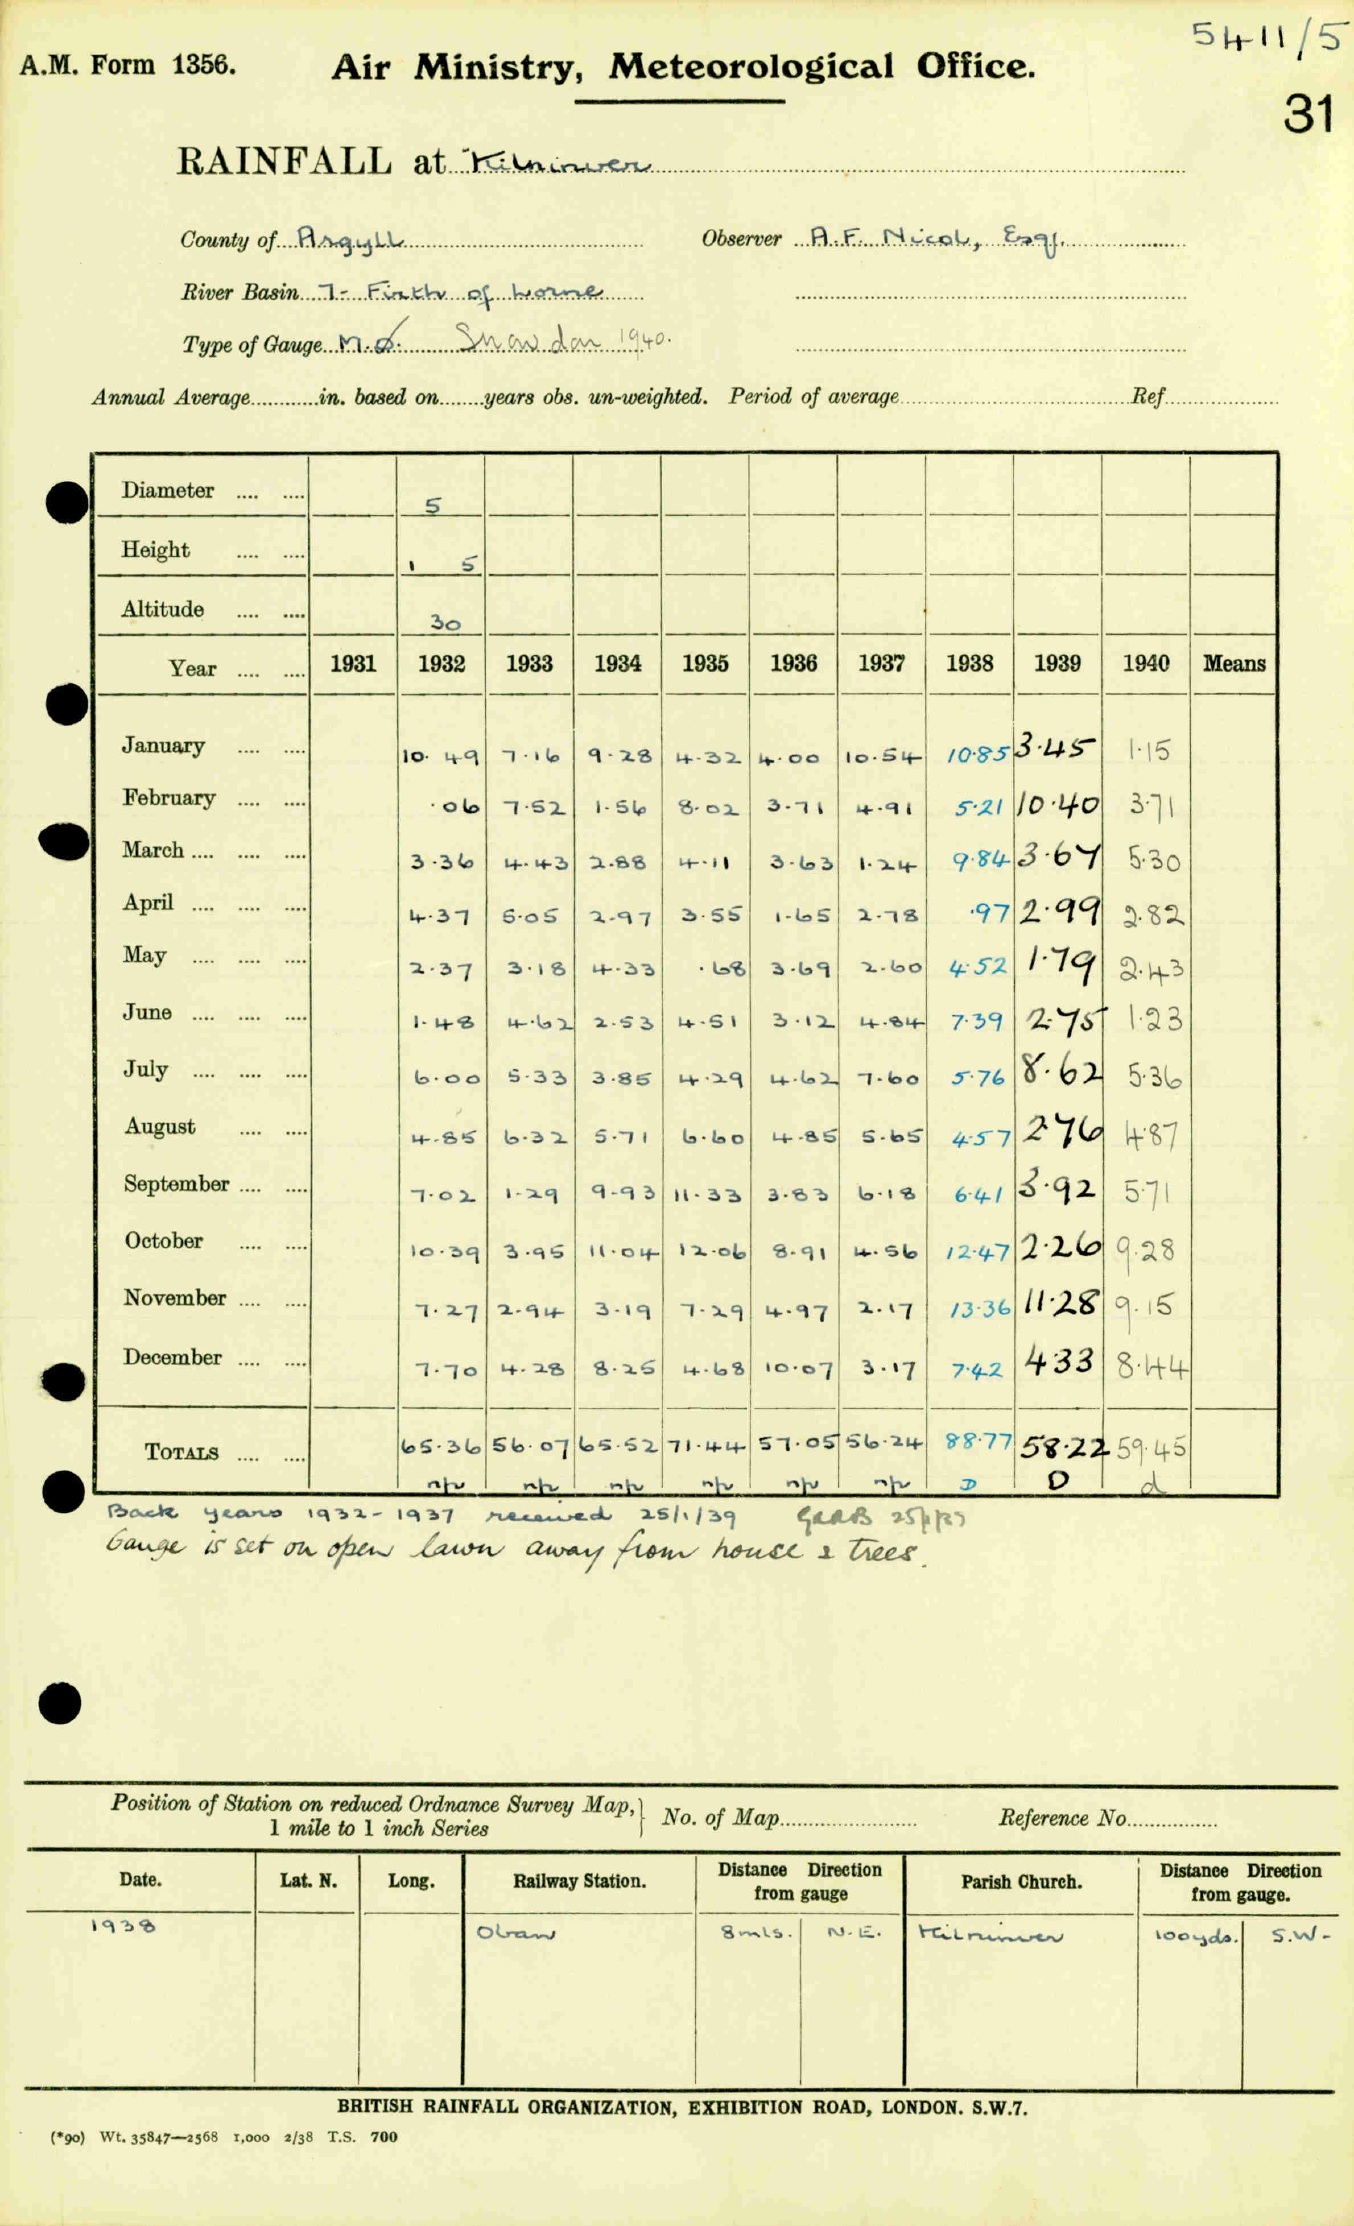 5411/5
A.M. Form 1356. Air Ministry, Meteorological Office.
31
RAINFALL at Kilninver
County of Argyll Observer A.F. Nicol, Esq.
River Basin 7- Firth of Lorne
Type of Gauge M.O. Snowdon 1940.
Annual Average in. based on years obs. un-weighted. Period of average Ref
Diameter 5
Height 1 5
Altitude 30
Year 1931 1932 1933 1934 1935 1936 1937 1938 1939 1940 Means
January 10.49 7.16 9.28 4.32 4.00 10.54 10.85 3.45 1.15
February .06 7.52 1.56 8.02 3.71 4.91 5.21 10.40 3.71
March 3.36 4.43 2.88 4.11 3.63 1.24 9.84 3.67 5.30
April 4.37 5.05 2.97 3.55 1.65 2.78 .97 2.99 2.82
May 2.37 3.18 4.33 .68 3.69 2.60 4.52 1.79 2.43
June 1.48 4.62 2.53 4.51 3.12 4.84 7.39 2.75 1.23
July 6.00 5.33 3.85 4.29 4.62 7.60 5.76 8.62 5.36
August 4.85 6.32 5.71 6.60 4.85 5.65 4.57 2.76 4.87
September 7.02 1.29 9.93 11.33 3.83 6.18 6.41 3.92 5.71
October 10.39 3.95 11.04 12.06 8.91 4.56 12.47 2.26 9.28
November 7.27 2.94 3.19 7.29 4.97 2.17 13.36 11.28 9.15
December 7.70 4.28 8.25 4.68 10.07 3.17 7.42 4.33 8.44
TOTALS 65.36 56.07 65.52 71.44 57.05 56.24 88.77 58.22 59.45
n/p n/p n/p n/p n/p n/p D D d
Back years 1932-1937 received 25/1/39
Gauge is set on open lawn away from house & trees.
Position of Station on reduced Ordnance Survey Map, 1 mile to 1 inch Series No. of Map Reference No.
Date. Lat. N. Long. Railway Station. Distance Direction from gauge Parish Church. Distance Direction from gauge.
1938 Oban 8mls. N.E. Kilninver 100yds. S.W.
BRITISH RAINFALL ORGANIZATION, EXHIBITION ROAD, LONDON. S.W.7.
(*90) Wt. 35847—2568 1,000 2/38 T.S. 700